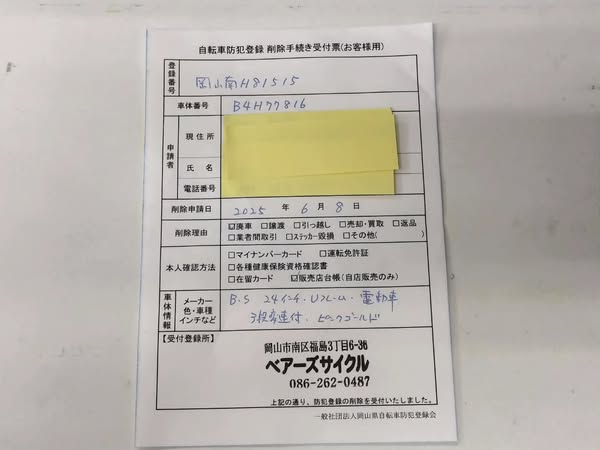 自転車防犯登録 削除手続き受付票(お客様用)
登録番号 岡山南H81515
車体番号 B4H77816
申請者
現住所
氏名
電話番号
削除申請日 2025 年 6 月 8 日
削除理由 ☑廃車 □譲渡 □引っ越し □売却・買取 □返品
□業者間取引 □ステッカー毀損 □その他( )
本人確認方法 □マイナンバーカード □運転免許証
□各種健康保険資格確認書
□在留カード ☑販売店台帳(自店販売のみ)
車体情報 メーカー 色・車種 インチなど B.S 24インチ・Uフレーム・電動車
3段変速付・ピンクゴールド
【受付登録所】
岡山市南区福島3丁目6-36
ベアーズサイクル
086-262-0487
上記の通り、防犯登録の削除を受付いたしました。
一般社団法人岡山県自転車防犯登録会